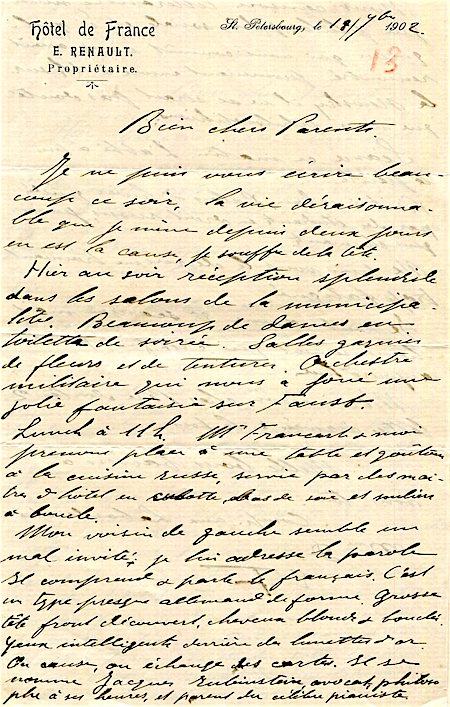 Hôtel de France
E. RENAULT.
Propriétaire.
St. Petersbourg, le 18/7bre 1902.
13
Bien chers Parents.
Je ne puis vous écrire beau-
coup ce soir, la vie déraisonna-
ble que je mène depuis deux jours
en est la cause, je souffre de la tête.
Hier au soir réception splendide
dans les salons de la municipa-
lité. Beaucoup de dames en
toilette de soirée. Salles garnies
de fleurs et de tentures. Orchestre
militaire qui nous a joué une
jolie fantaisie sur Faust.
Lunch à 11h. Mr Francart & moi
prenons place à une table et goûtons
à la cuisine russe, servie par des maî-
tres d'hôtel en culotte, bas de soie et souliers
à boucle.
Mon voisin de gauche semble un
mal invité; je lui adresse la parole
Il comprend & parle le français. C'est
un type presque allemand de forme. Grosse
tête front découvert, cheveux blonds & bouclés.
Yeux intelligents derrière des lunettes d'or.
On cause, on échange ses cartes. Il se
nomme Jacques Rubinstein avocat, philoso
phe à ses heures, et parent du célèbre pianiste